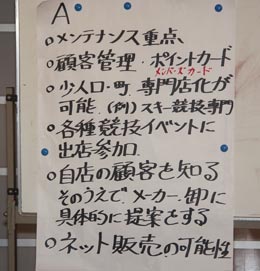 A
○メンテナンス重点、
○顧客管理・ポイントカード
メンバーズカード
○少人口・町、専門店化が
可能、(例)スキー競技専門
○各種競技イベントに
出店参加
○自店の顧客を知る
そのうえでメーカー・卸に
具体的に提案をする
○ネット販売の可能性